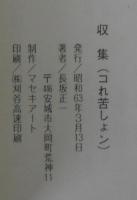 収集(コれ苦しょン)
発行/昭和63年3月13日
著者/長坂正一
〒446安城市大岡町荒神11
制作/マセキアート
印刷/㈱刈谷高速印刷